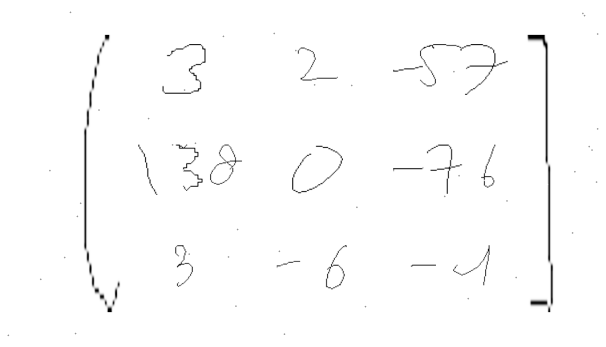 3 2 -57
138 0 -76
3 -6 -1